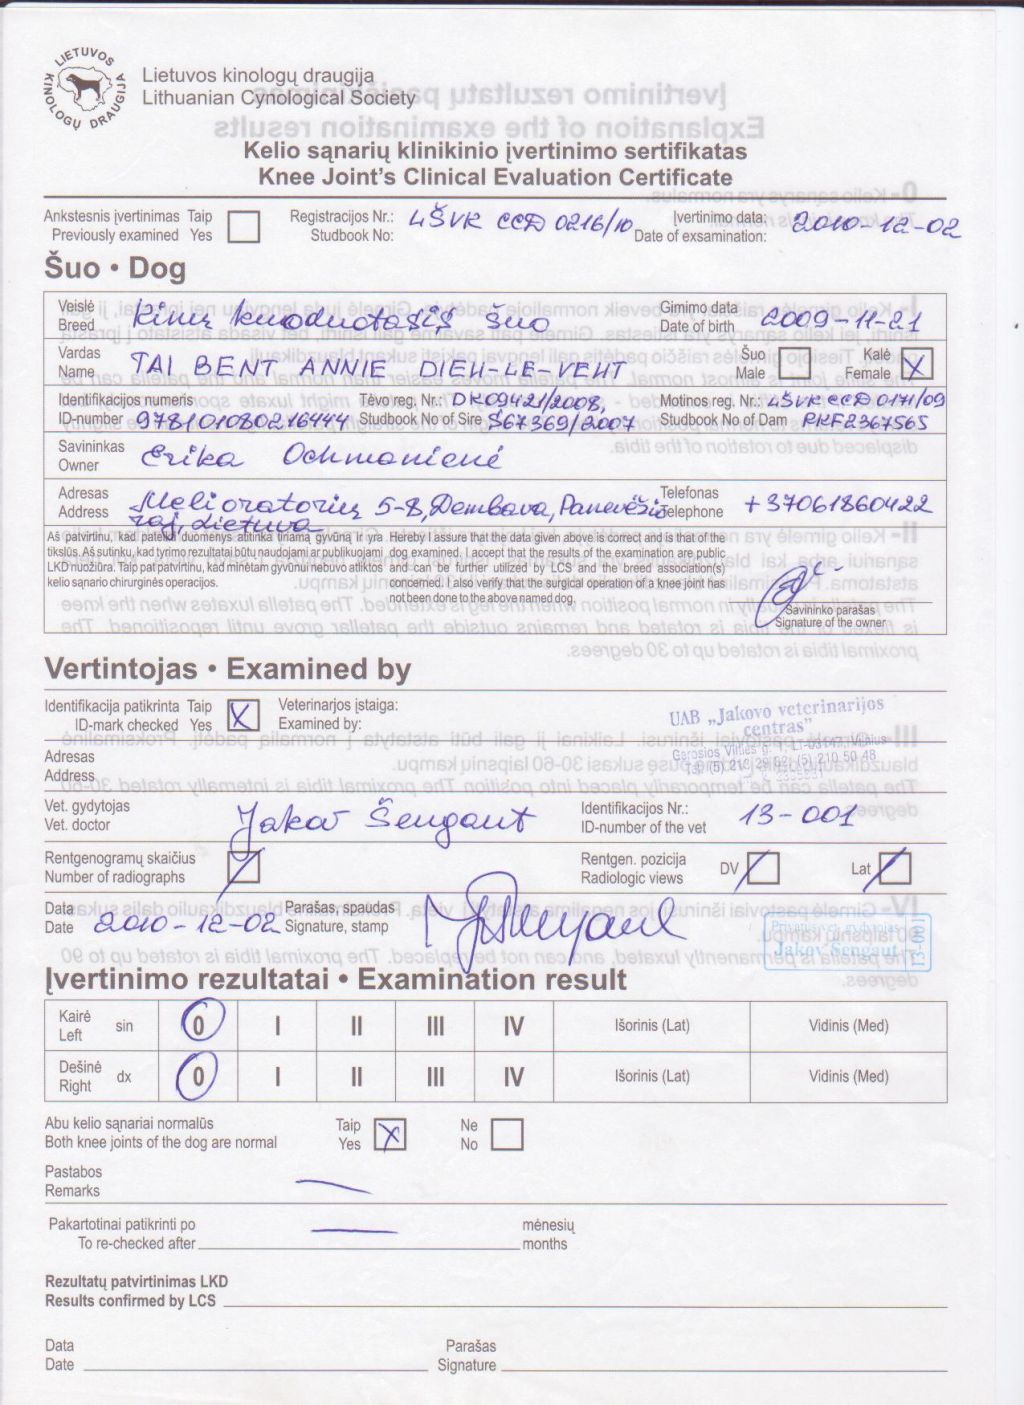 LIETUVOS KINOLOGŲ DRAUGIJA
Lietuvos kinologų draugija
Lithuanian Cynological Society
Kelio sąnarių klinikinio įvertinimo sertifikatas
Knee Joint's Clinical Evaluation Certificate
Ankstesnis įvertinimas Taip
Previously examined Yes
Registracijos Nr.: LŠVK CCD 0216/10
Studbook No:
Įvertinimo data: 2010-12-02
Date of exsamination:
Šuo • Dog
Veislė Kinų kuoduotasis šuo
Breed
Gimimo data 2009-11-21
Date of birth
Vardas TAI BENT ANNIE DIEH-LE-VEHT
Name
Šuo
Male
Kalė X
Female
Identifikacijos numeris
ID-number 978101080216444
Tėvo reg. Nr.: DK09421/2008,
Studbook No of Sire S67369/2007
Motinos reg. Nr.: LŠVK CCD 0171/09
Studbook No of Dam PKR2367565
Savininkas Erika Ochmanienė
Owner
Adresas Melioratorių 5-8, Dembava, Panevėžio
Address raj, Lietuva
Telefonas +37061860422
Telephone
Aš patvirtinu, kad pateikti duomenys atitinka tiriamą gyvūną ir yra
tikslūs. Aš sutinku, kad tyrimo rezultatai būtų naudojami ar publikuojami
LKD nuožiūra. Taip pat patvirtinu, kad minėtam gyvūnui nebuvo atiktos
kelio sąnario chirurginės operacijos.
Hereby I assure that the data given above is correct and is that of the
dog examined. I accept that the results of the examination are public
and can be further utilized by LCS and the breed association(s)
concerned. I also verify that the surgical operation of a knee joint has
not been done to the above named dog.
Savininko parašas
Signature of the owner
Vertintojas • Examined by
Identifikacija patikrinta Taip X
ID-mark checked Yes
Veterinarijos įstaiga:
Examined by:
UAB „Jakovo veterinarijos
centras"
Gerosios Vilties g. LT-03147 Vilnius
Tel. (5) 213 29 02, (5) 210 50 48
Adresas
Address
Vet. gydytojas Jakov Šengaut
Vet. doctor
Identifikacijos Nr.: 13-001
ID-number of the vet
Rentgenogramų skaičius
Number of radiographs
Rentgen. pozicija
Radiologic views
DV
Lat
Data
Date 2010-12-02
Parašas, spaudas
Signature, stamp
Jakov Šengaut
13-001
Įvertinimo rezultatai • Examination result
Kairė
Left
sin 0 I II III IV Išorinis (Lat) Vidinis (Med)
Dešinė
Right
dx 0 I II III IV Išorinis (Lat) Vidinis (Med)
Abu kelio sąnariai normalūs
Both knee joints of the dog are normal
Taip X
Yes
Ne
No
Pastabos
Remarks
Pakartotinai patikrinti po mėnesių
To re-checked after months
Rezultatų patvirtinimas LKD
Results confirmed by LCS
Data
Date
Parašas
Signature